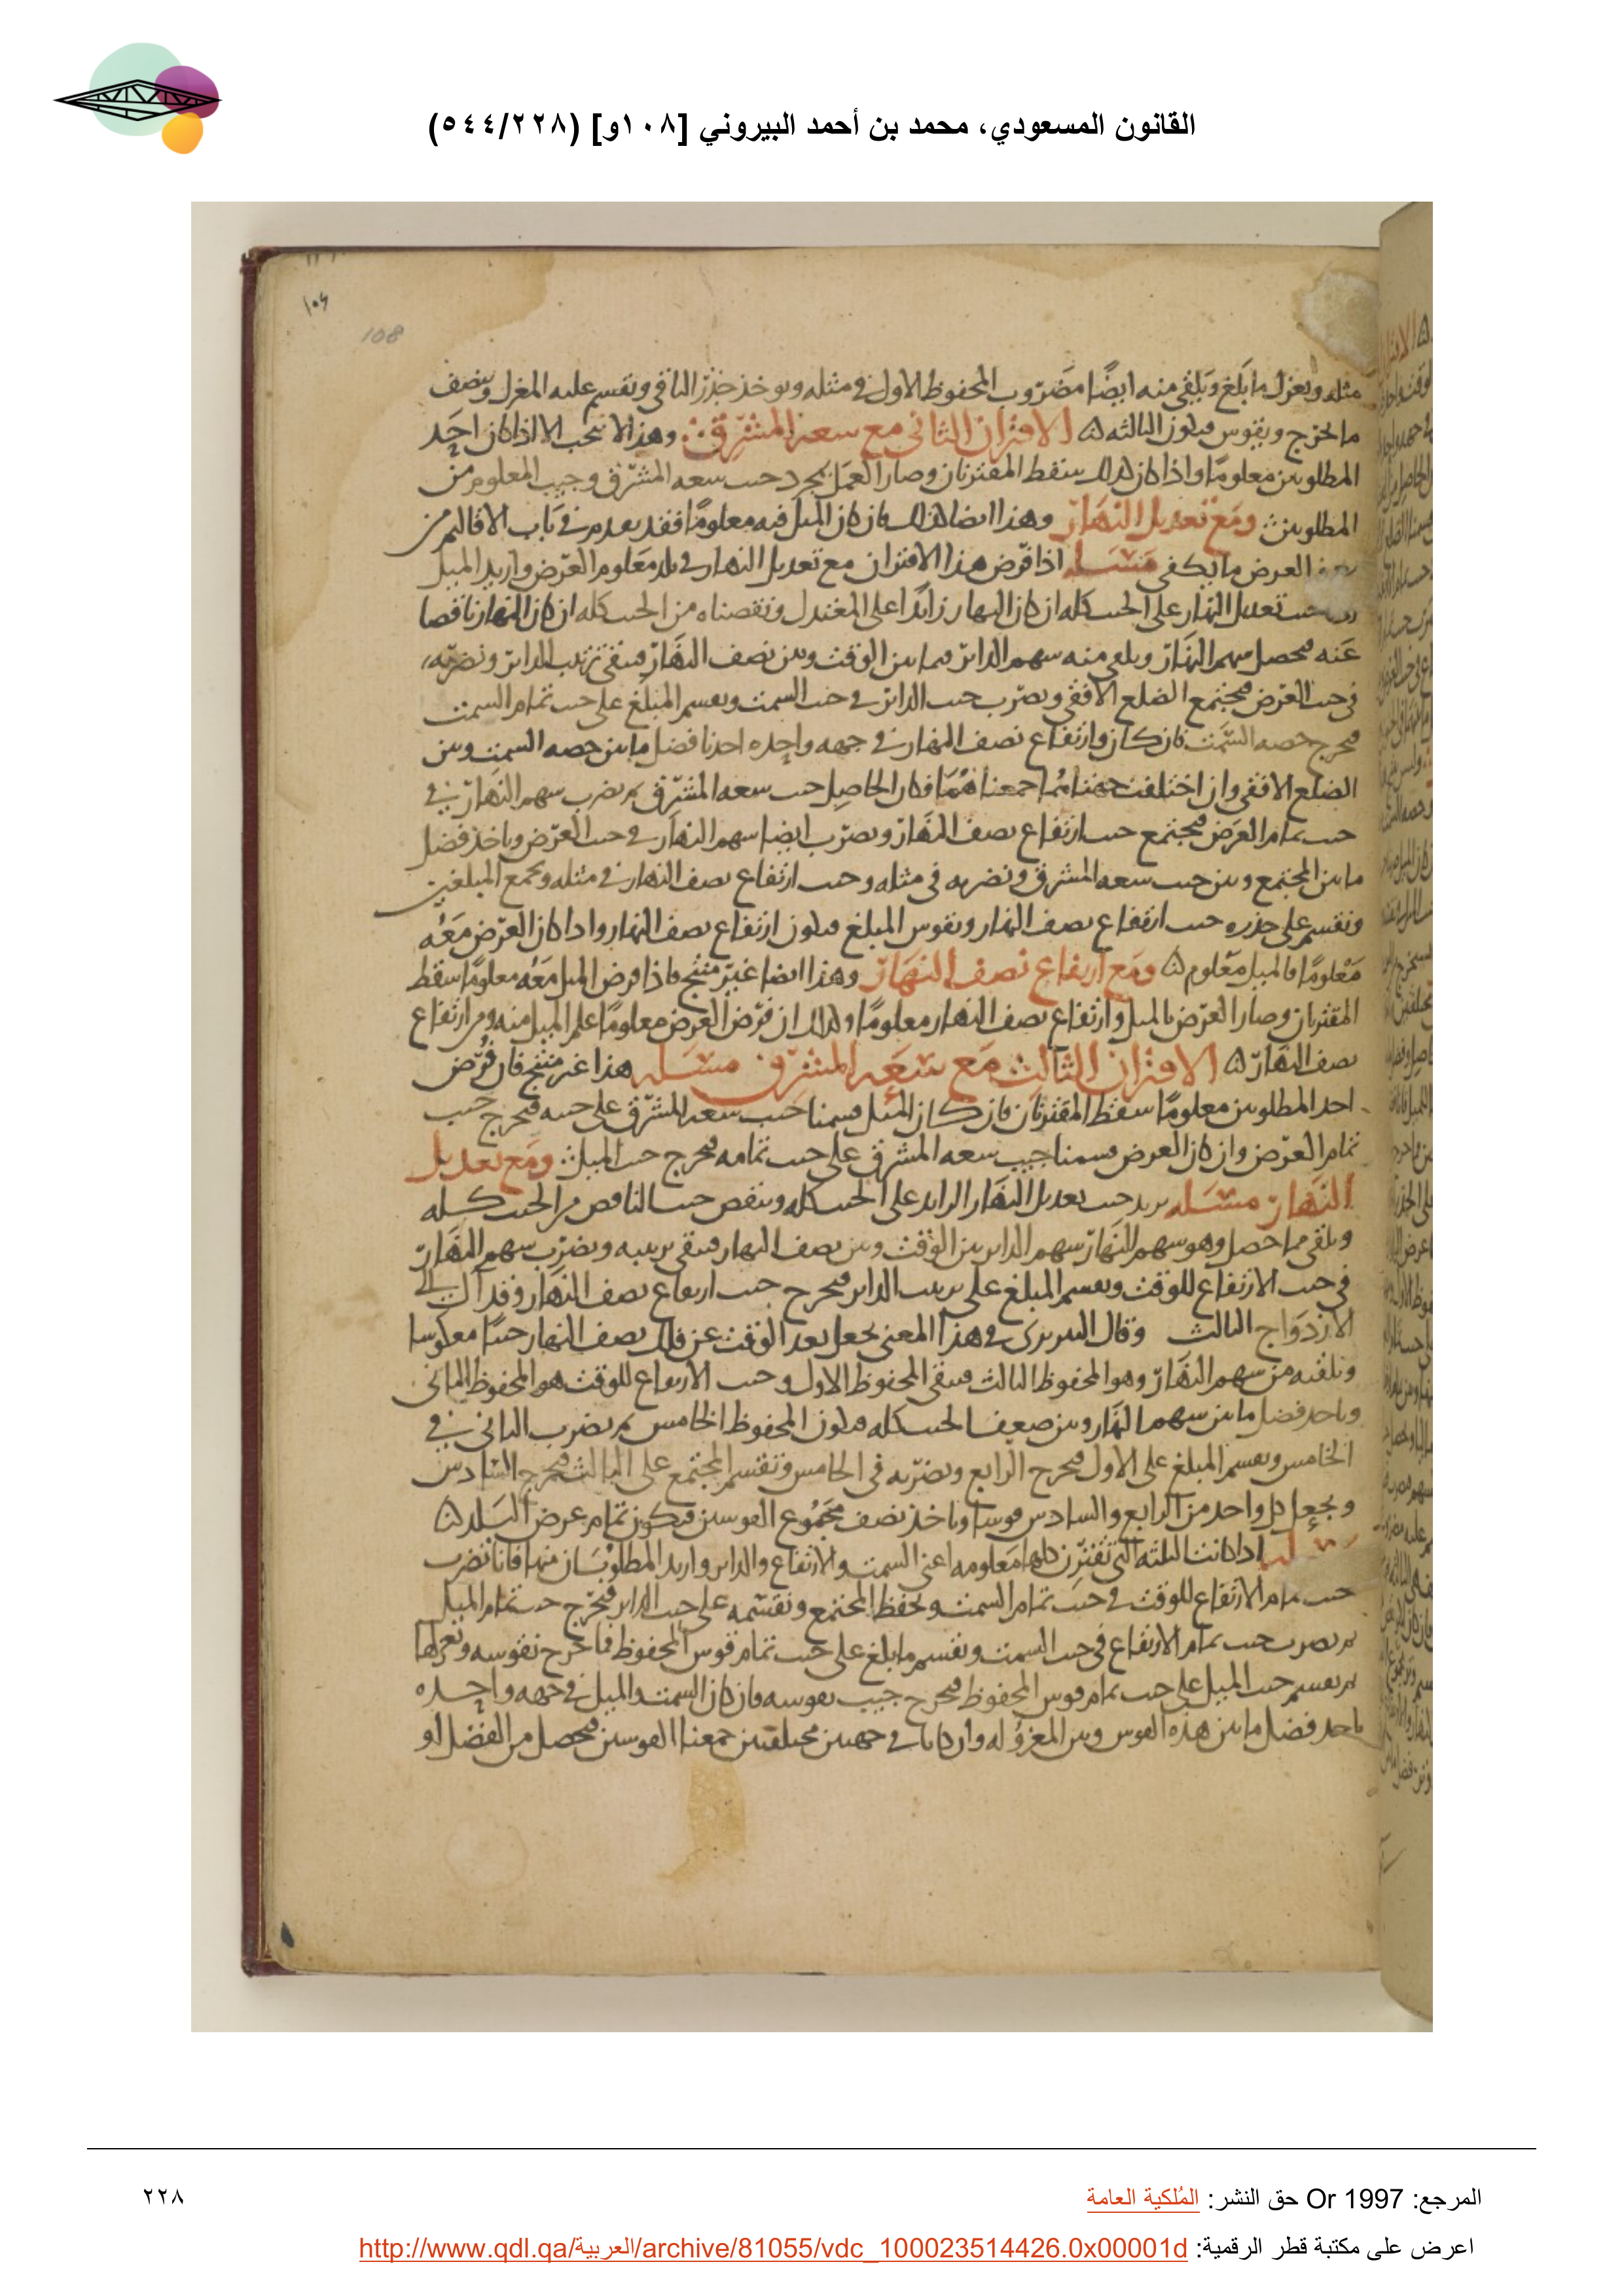 القانون المسعودي، محمد بن أحمد البيروني [١٠٨و] (٥٤٤/٢٢٨)
108
مثله ويعزل ما بلغ ويلقى منه ايضًا مضروب المحفوظ الاول في مثله ويوخذ جذر الباقي ويقسم عليه المعزل وينصف
ما يخرج ويقوس فيكون الثالثه الاقتران الثاني مع سعة المشرق وهذا لا يجب الا اذا كان احد
المطلوبين معلومًا واذا كان كذلك سقط المقترنان وصار العمل بمجرد جيب سعه المشرق وجيب المعلوم من
المطلوبين ومع تعديل النهار وهذا ايضا كذلك فان كان الميل فيه معلومًا فقد تقدم في باب الاقاليم من
العرض ما يكفى مسله اذا فرض هذا الاقتران مع تعديل النهار في بلد معلوم العرض واريد الميل
جيب تعديل النهار على الجيب كله ان كان النهار زائدًا على المعتدل ونقصناه من الجيب كله ان كان النهار ناقصا
عنه فيحصل سهم النهار ويلقى منه سهم الدائر فيما بين الوقت وبين نصف النهار فيبقى ترتيب الدائر ونضربه
في جيب العرض فيجتمع الضلع الافقي ويضرب جيب الدائر في جيب السمت ويقسم المبلغ على جيب تمام السمت
فيخرج حصه السمت فان كان وارتفاع نصف النهار في جهه واحده اخذنا فضل ما بين حصه السمت وبين
الضلع الافقي وان اختلفت جهتاهما جمعناهما فكان الحاصل جيب سعه المشرق ثم يضرب سهم النهار في
جيب تمام العرض فيجتمع جيب ارتفاع نصف النهار ويضرب ايضا سهم النهار في جيب العرض وياخذ فضل
ما بين المجتمع وبين جيب سعه المشرق ونضربه في مثله وجيب ارتفاع نصف النهار في مثله ويجمع المبلغين
ونقسم على جذره جيب ارتفاع نصف النهار ونقوس المبلغ فيكون ارتفاع نصف النهار واذا كان العرض معه
معلومًا فالميل معلوم ومع ارتفاع نصف النهار وهذا ايضا غير منتج فاذا فرض الميل معه معلومًا سقط
المقترنان وصار العرض بالميل وارتفاع نصف النهار معلومًا وكذلك ان فرض العرض معلومًا علم الميل منه ومن ارتفاع
نصف النهار الاقتران الثالث مع سعه المشرق مسله هذا غير منتج فان فرض
احد المطلوبين معلومًا سقط المقترنان فان كان الميل قسمنا جيب سعه المشرق على جيبه فيخرج جيب
تمام العرض وان كان العرض قسمنا جيب سعه المشرق على جيب تمامه فيخرج جيب الميل ومع تعديل
النهار مسله يزيد جيب تعديل النهار الزايد على الجيب كله وينقص جيب الناقص من الجيب كله
ويلقى مما حصل وهو سهم النهار سهم الداير بين الوقت وبين نصف النهار فيبقى ترتيبه ويضرب سهم النهار
في جيب الارتفاع للوقت ويقسم المبلغ على ترتيب الداير فيخرج جيب ارتفاع نصف النهار وقد آل الى
الازدواج الثالث وقال التبريزى في هذا المعنى يجعل بعد الوقت عن فلك نصف النهار جيبًا معكوسا
ونلقيه من سهم النهار وهو المحفوظ الثالث فيبقى المحفوظ الاول وجيب الارتفاع للوقت هو المحفوظ الثاني
وياخذ فضل ما بين سهم النهار وبين ضعف الجيب كله فيكون المحفوظ الخامس ثم يضرب الثاني في
الخامس ويقسم المبلغ على الاول فيخرج الرابع ويضربه في الخامس ونقسم المجتمع على الثالث فيخرج السادس
ويجعل كل واحد من الرابع والسادس قوسا وياخذ نصف مجموع القوسين فيكون تمام عرض البلد
اذا كانت الثلثه التي تقترن كلها معلومه اعني السمت والارتفاع والداير واريد المطلوبان منها فانا نضرب
جيب تمام الارتفاع للوقت في جيب تمام السمت ونحفظ المجتمع ونقسمه على جيب الداير فيخرج جيب تمام الميل
ثم يضرب جيب تمام الارتفاع في جيب السمت ونقسم ما بلغ على جيب تمام قوس المحفوظ فما خرج نقوسه ونعزلها
ثم يقسم جيب الميل على جيب تمام قوس المحفوظ فيخرج جيب نقوسه فان كان السمت والميل في جهه واحده
ناخذ فضل ما بين هذه القوس وبين المعزوله وان كانا في جهتين مختلفتين جمعنا القوسين فيحصل من الفضل او
المرجع: Or 1997 حق النشر: المُلكية العامة
٢٢٨
اعرض على مكتبة قطر الرقمية: http://www.qdl.qa/العربية/archive/81055/vdc_100023514426.0x00001d